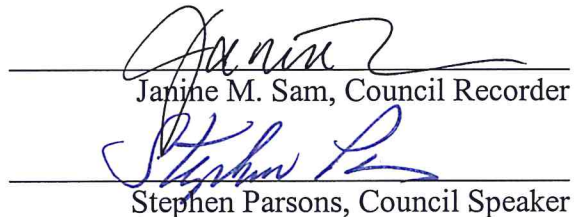 Janine
Janine M. Sam, Council Recorder
Stephen
Stephen Parsons, Council Speaker